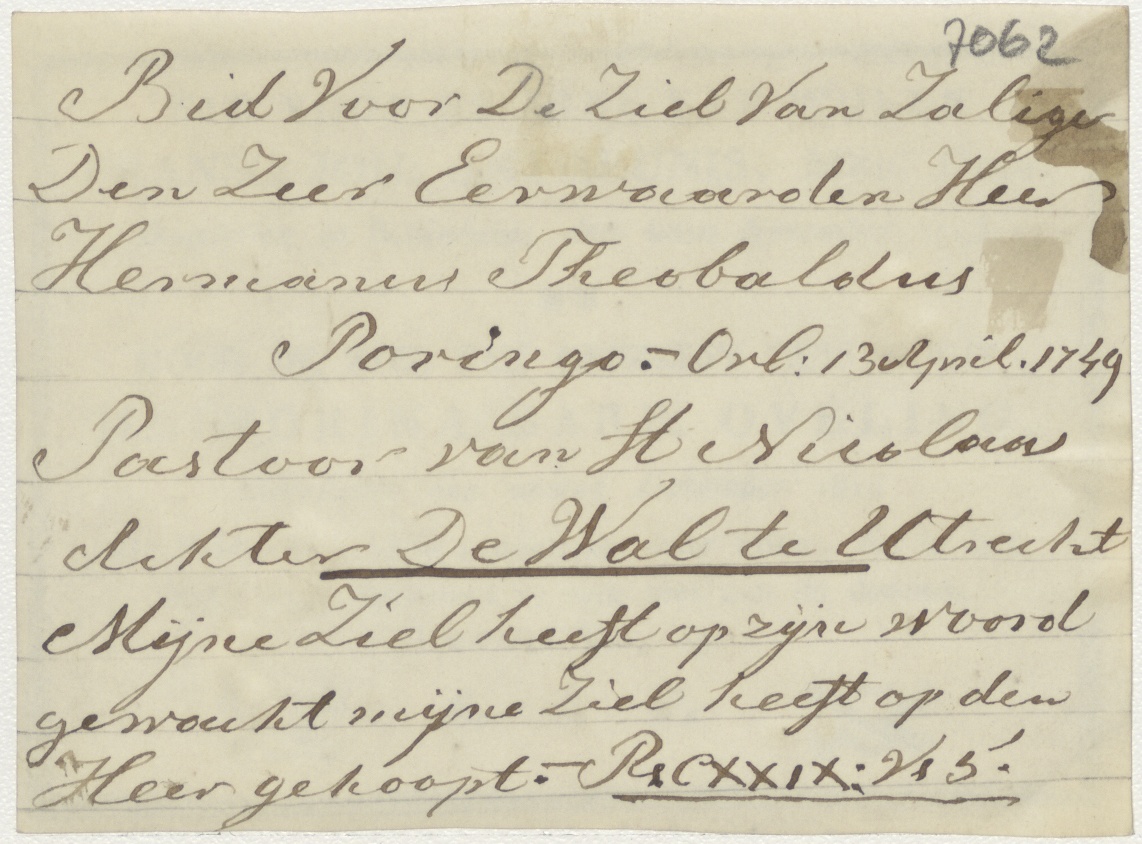 7062
Bid Voor De Ziel Van Zaliger
Den Zeer Eerwaarden Heer
Hermanus Theobaldus
Poringo. - Orl: 13 April. 1749
Pastoor van St Nicolaas
Achter De Wal te Utrecht
Mijne Ziel heeft op zijn woord
gewacht mijne Ziel heeft op den
Heer gehoopt. - Ps CXXIX: Vs 5.